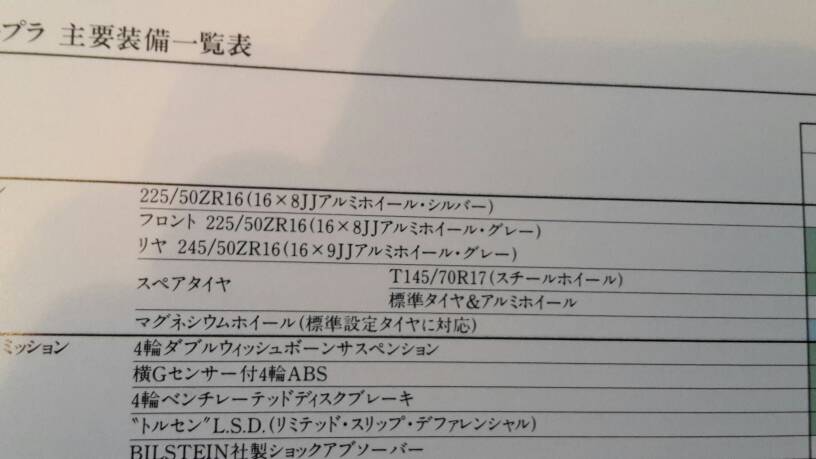 プラ 主要装備一覧表
225/50ZR16(16×8JJアルミホイール・シルバー)
フロント 225/50ZR16(16×8JJアルミホイール・グレー)
リヤ 245/50ZR16(16×9JJアルミホイール・グレー)
スペアタイヤ
T145/70R17(スチールホイール)
標準タイヤ&アルミホイール
マグネシウムホイール(標準設定タイヤに対応)
ミッション
4輪ダブルウィッシュボーンサスペンション
横Gセンサー付4輪ABS
4輪ベンチレーテッドディスクブレーキ
〝トルセン〟L.S.D.(リミテッド・スリップ・デファレンシャル)
BILSTEIN社製ショックアブソーバー